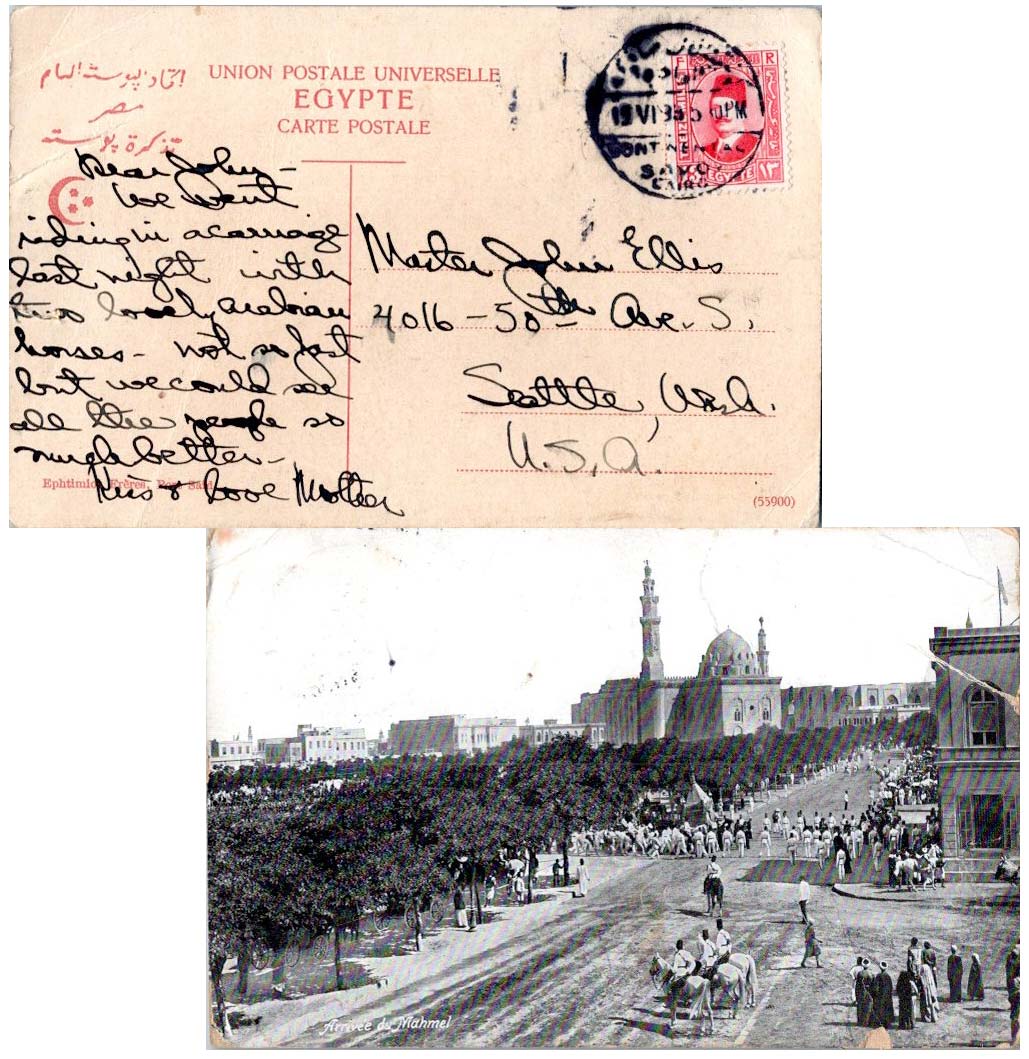 اتحاد البوستة العام
مصر
تذكرة بوستة
UNION POSTALE UNIVERSELLE
EGYPTE
CARTE POSTALE
CONTINENTAL
SAVOY
CAIRO
EGYPTE
١٣
Dear John –
We went
riding in a carriage
last night with
two lovely arabian
horses – not so fast
but we could see
all the people so
much better –
Kiss & Love Mother
Master John Ellis
4016 – 50th Ave. S.
Seattle, Wash.
U.S.A.
Ephtimios Frères, Port Said
(55900)
Arrivée du Mahmel